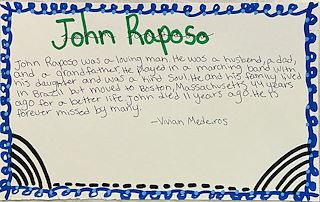 John Raposo
John Raposo was a loving man. He was a husband, a dad,
and a grandfather. He played in a marching band with
his daughter and was a kind soul. He and his family lived
in Brazil but moved to Boston, Massachusetts 44 years
ago for a better life. John died 11 years ago. He is
forever missed by many.
-Vivian Medeiros